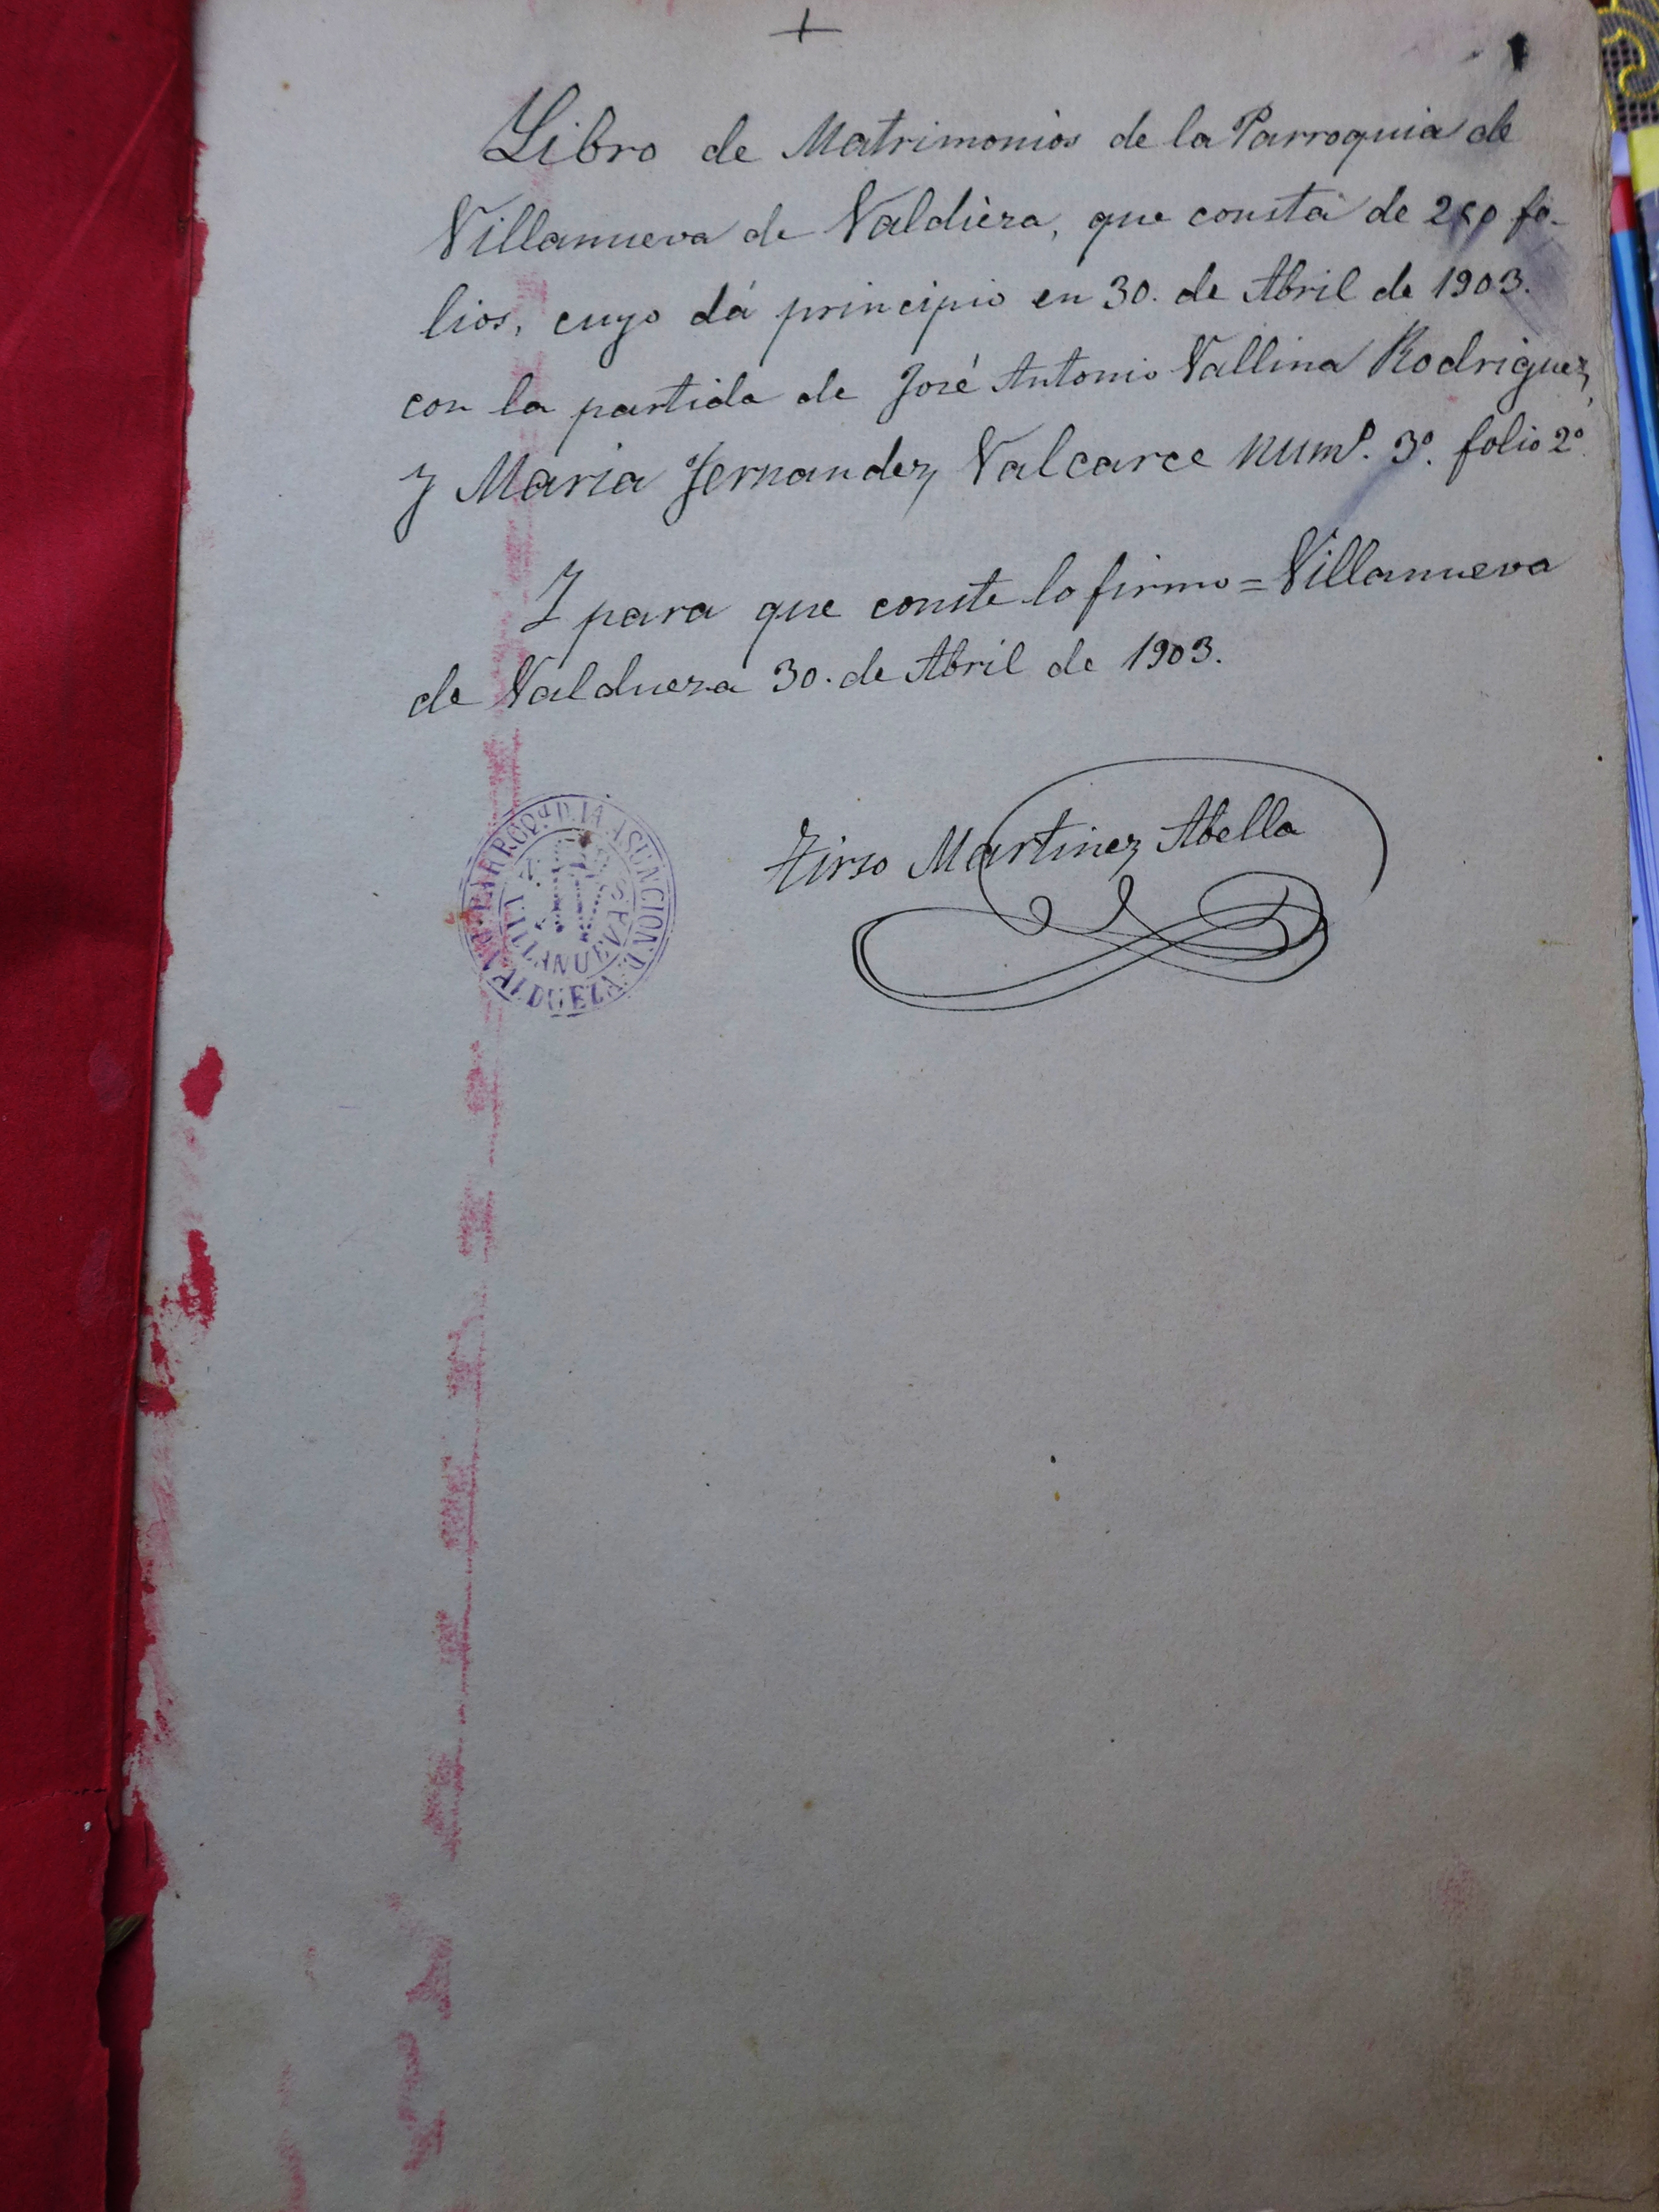 Libro de Matrimonios de la Parroquia de
Villanueva de Valdieza, que consta de 250 fo-
lios, cuyo dá principio en 30. de Abril de 1903.
con la partida de José Antonio Vallina Rodriguez,
y Maria Fernandez Valcarce numº. 3º. folio 2º.
Y para que conste lo firmo = Villanueva
de Valdueza 30. de Abril de 1903.
Tirso Martinez Abella
PARROQª D. LA ASUNCION D.
VILLANUEVA
VALDUEZA